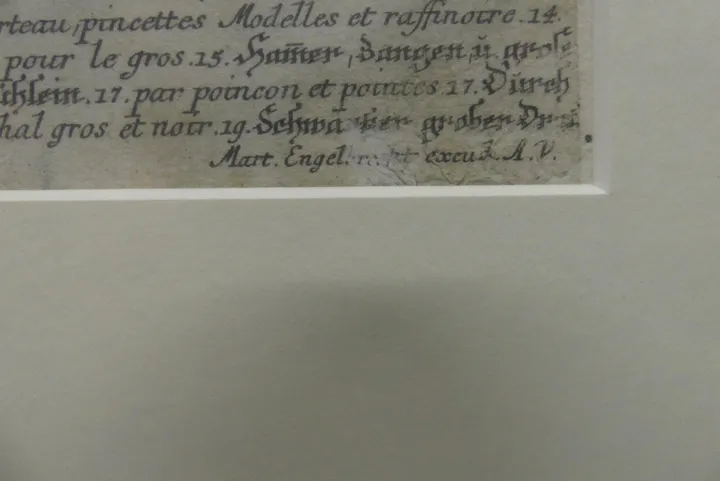 rteau, pincettes Modelles et raffinoire. 14.
pour le gros. 15. Ham̅er, Zangen, ŭ grose
chlein. 17. par poincon et pointes 17. Dŭrch
hal gros et noir. 19. Schwartzer grober Dra
Mart. Engelbrecht excud. A.V.